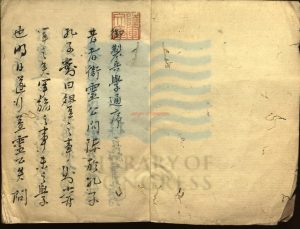 御製兵學通序
昔者衛靈公問陳於孔子
孔子對曰俎豆之事則嘗
聞之矣軍旅之事未之學
也明日遂行蓋靈公失問
LIBRARY OF CONGRESS